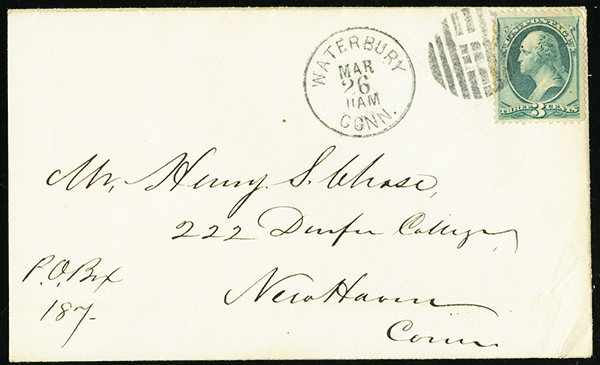 WATERBURY
MAR
26
11AM
CONN.
U.S. POSTAGE
THREE 3 CENTS
Mr. Henry S. Chase,
222 Durfee College,
New Haven
Conn.
P.O. Box
187.